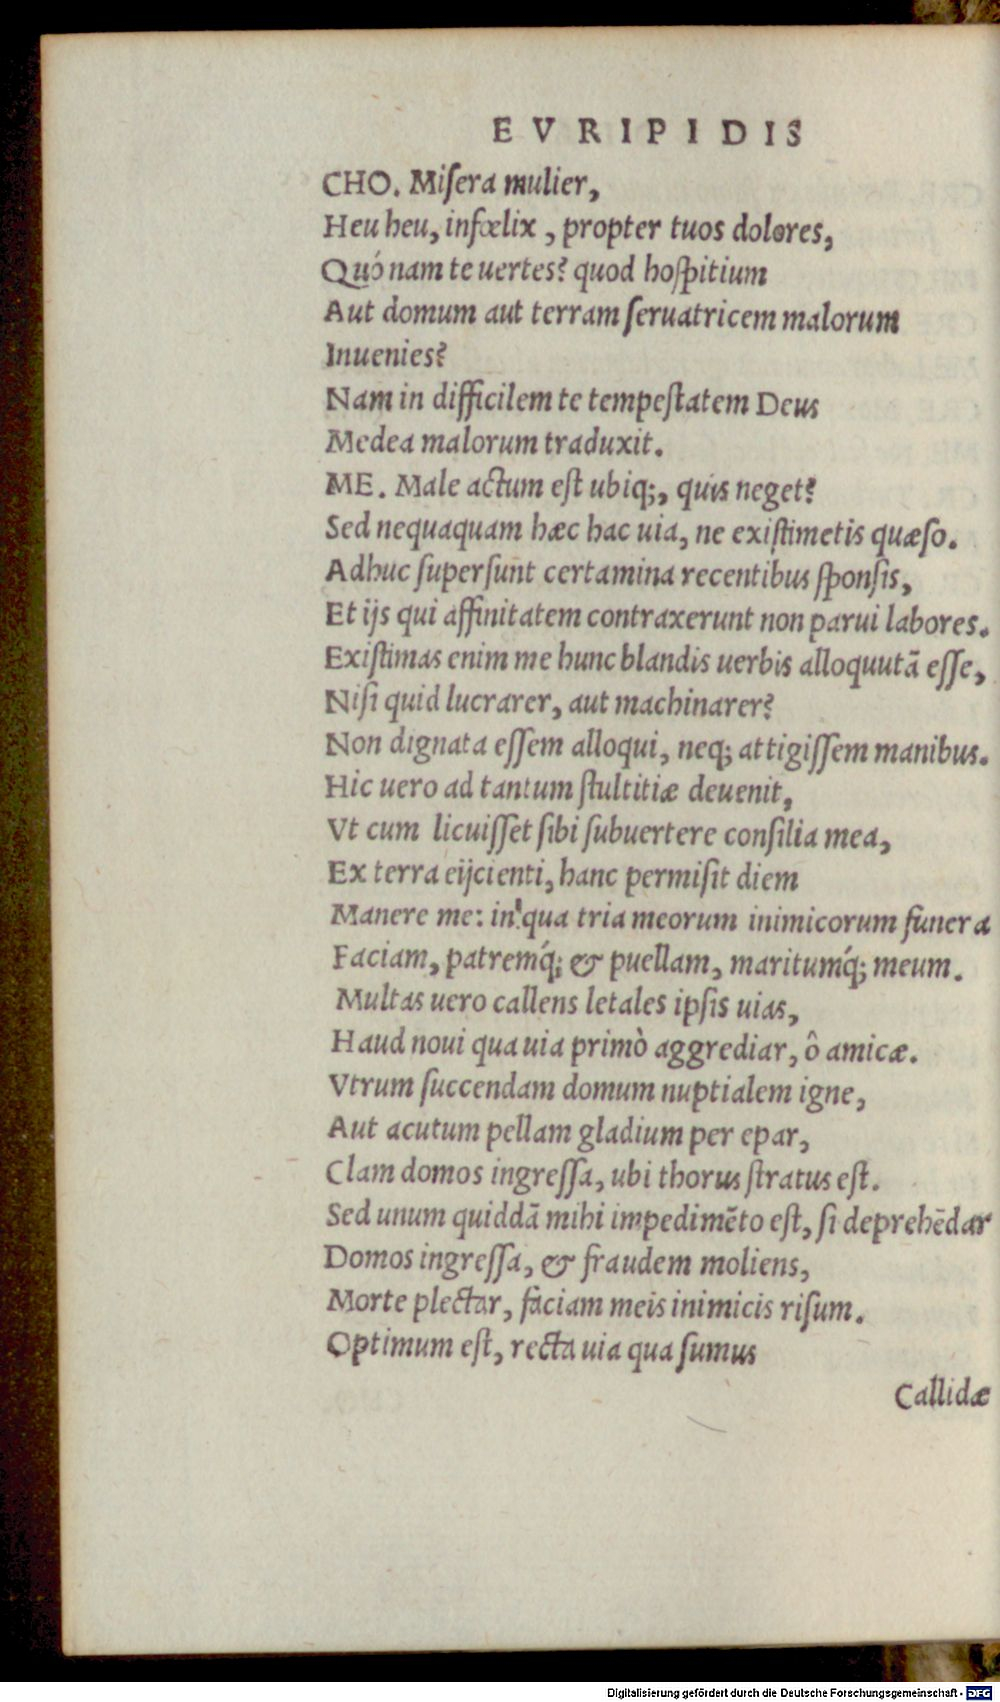 EVRIPIDIS
CHO. Miſera mulier,
Heu heu, infœlix, propter tuos dolores,
Quó nam te uertes? quod hoſpitium
Aut domum aut terram ſeruatricem malorum
Inuenies?
Nam in difficilem te tempeſtatem Deus
Medea malorum traduxit.
ME. Male actum eſt ubiq;, quis neget?
Sed nequaquam hæc hac uia, ne exiſtimetis quæſo.
Adhuc ſuperſunt certamina recentibus ſponſis,
Et ijs qui affinitatem contraxerunt non parui labores.
Exiſtimas enim me hunc blandis uerbis alloquutā eſſe,
Niſi quid lucrarer, aut machinarer?
Non dignata eſſem alloqui, neq; attigiſſem manibus.
Hic uero ad tantum ſtultitiæ deuenit,
Vt cum licuiſſet ſibi ſubuertere conſilia mea,
Ex terra eijcienti, hanc permiſit diem
Manere me: in qua tria meorum inimicorum funera
Faciam, patremq́; & puellam, maritumq́; meum.
Multas uero callens letales ipſis uias,
Haud noui qua uia primò aggrediar, ô amicæ.
Vtrum ſuccendam domum nuptialem igne,
Aut acutum pellam gladium per epar,
Clam domos ingreſſa, ubi thorus ſtratus eſt.
Sed unum quiddā mihi impedimēto eſt, ſi deprehēdar
Domos ingreſſa, & fraudem moliens,
Morte plectar, faciam meis inimicis riſum.
Optimum eſt, recta uia qua ſumus
Callidæ
Digitalisierung gefördert durch die Deutsche Forschungsgemeinschaft - DFG